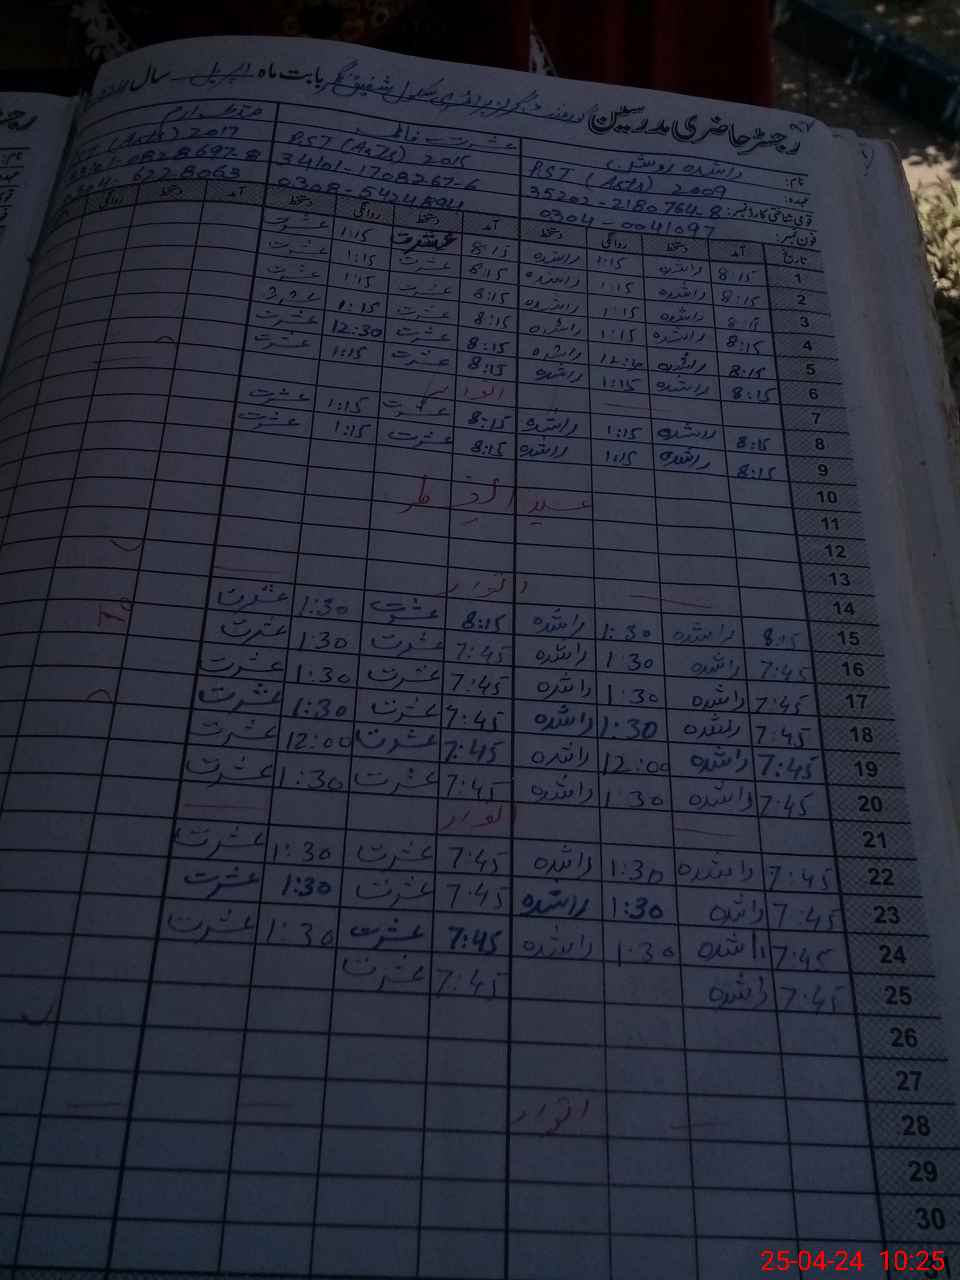 رجسٹر حاضری مدرسین بابت ماہ اپریل سال
نام: راشدہ
عشرت فاطمہ
عہدہ: P.ST (AsTs) 2009
P.ST (AsTs) 2015
2017
قومی شناختی کارڈ نمبر: 35202-2180764-8
34101-1708267-6
فون نمبر: 0304-0041097
0308-5424894
6228063
تاریخ آمد دستخط روانگی دستخط آمد دستخط روانگی دستخط آمد دستخط روانگی
1 8:15 راشدہ 1:15 راشدہ 8:15 عشرت 1:15 عشرت
2 8:15 راشدہ 1:15 راشدہ 8:15 عشرت 1:15 عشرت
3 8:15 راشدہ 1:15 راشدہ 8:15 عشرت 1:15 عشرت
4 8:15 راشدہ 1:15 راشدہ 8:15 عشرت 1:15 عشرت
5 8:15 راشدہ راشدہ 8:15 عشرت 12:30 عشرت
6 8:15 راشدہ 1:15 راشدہ 8:15 عشرت 1:15 عشرت
7 اتوار
8 8:15 راشدہ 1:15 راشدہ 8:15 عشرت 1:15 عشرت
9 8:15 راشدہ 1:15 راشدہ 8:15 عشرت 1:15 عشرت
10
11 عید الفطر
12
13
14 اتوار
15 8:15 راشدہ 1:30 راشدہ 8:15 عشرت 1:30 عشرت
16 7:45 راشدہ 1:30 راشدہ 7:45 عشرت 1:30 عشرت
17 7:45 راشدہ 1:30 راشدہ 7:45 عشرت 1:30 عشرت
18 7:45 راشدہ 1:30 راشدہ 7:45 عشرت 1:30 عشرت
19 7:45 راشدہ 12:00 راشدہ 7:45 عشرت 12:00 عشرت
20 7:45 راشدہ 1:30 راشدہ 7:45 عشرت 1:30 عشرت
21 اتوار
22 7:45 راشدہ 1:30 راشدہ 7:45 عشرت 1:30 عشرت
23 7:45 راشدہ 1:30 راشدہ 7:45 عشرت 1:30 عشرت
24 7:45 راشدہ 1:30 راشدہ 7:45 عشرت 1:30 عشرت
25 7:45 راشدہ 7:45 عشرت
26
27
28 اتوار
29
30
25-04-24 10:25